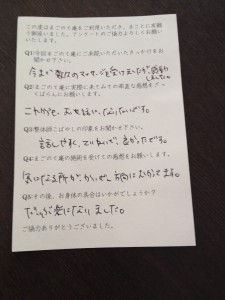 この度はまごのて庵をご利用いただき、まことに有難
う御座いました。アンケートのご協力よろしくお願い
いたします。
Q1:今回まごのて庵にご来院いただいたきっかけをお
聞かせ下さい。
今まで数々のマッサージを受けましたが感動
しました。
Q2:まごのて庵に実際に来てみての率直な感想をざっ
くばらんにお願いします。
これからも、お世話になりたいです。
Q3:整体師こばやしの印象をお聞かせ下さい。
話しやすく、ていねいで、良かったです。
Q4:まごのて庵の施術を受けての感想をお願いします。
気になる所が、かいぜん方向にむかってます。
Q5:その後、お身体の具合はいかがでしょうか?
だいぶ楽になりました。
ご協力ありがとうございました。